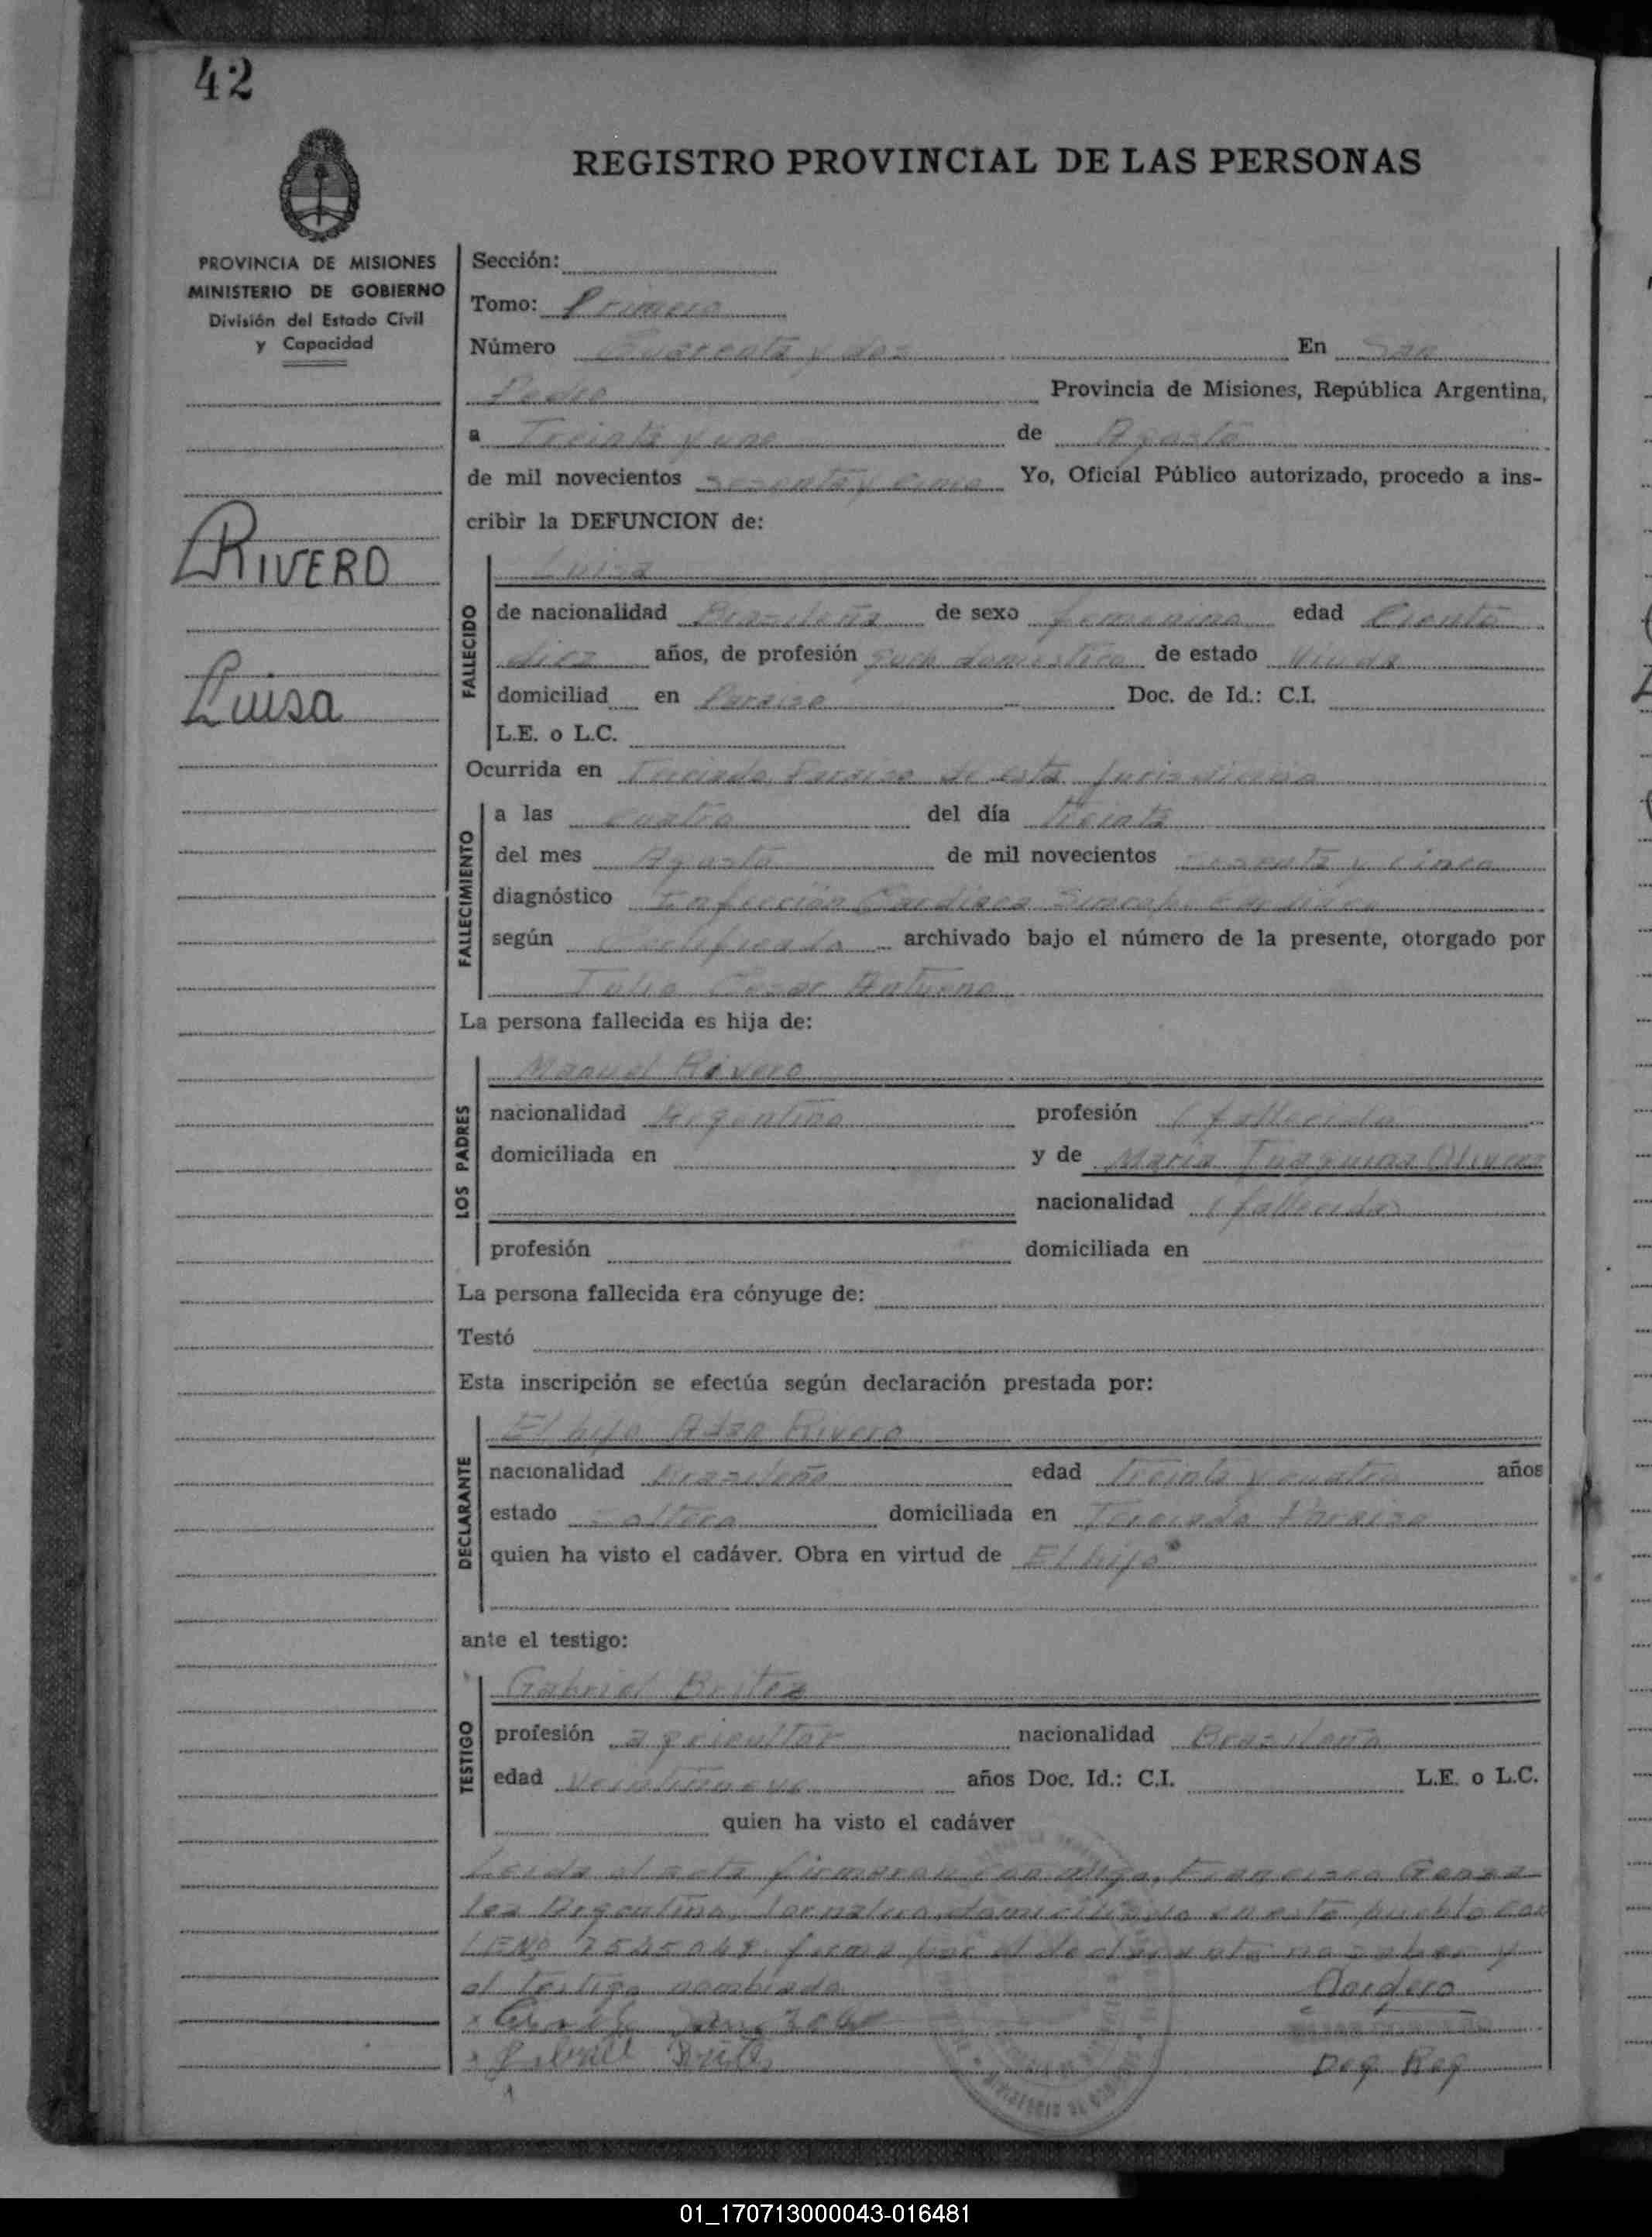 42
REGISTRO PROVINCIAL DE LAS PERSONAS
PROVINCIA DE MISIONES
MINISTERIO DE GOBIERNO
División del Estado Civil
y Capacidad
RIVERO
Luisa
Sección:
Tomo: Primero
Número Cuarenta y dos En San
Pedro Provincia de Misiones, República Argentina,
a Treinta y uno de Agosto
de mil novecientos sesenta y cinco Yo, Oficial Público autorizado, procedo a ins-
cribir la DEFUNCION de:
FALLECIDO
Luisa
de nacionalidad Brazileña de sexo femenino edad Ciento
diez años, de profesión domestico de estado Viuda
domiciliad en Paraiso Doc. de Id.: C.I.
L.E. o L.C.
Ocurrida en Paraiso de esta Jurisdiccion
FALLECIMIENTO
a las cuatro del día Treinta
del mes Agosto de mil novecientos sesenta y cinco
diagnóstico Infeccion Cardiaca
según Certificado archivado bajo el número de la presente, otorgado por
Julio Cesar Antueno
La persona fallecida es hija de:
LOS PADRES
Manuel Rivero
nacionalidad Argentino profesión (fallecido
domiciliada en y de Maria
nacionalidad (fallecida)
profesión domiciliada en
La persona fallecida era cónyuge de:
Testó
Esta inscripción se efectúa según declaración prestada por:
DECLARANTE
El hijo Adan Rivero
nacionalidad Brazileño edad Treinta y cuatro años
estado Soltero domiciliada en Paraiso
quien ha visto el cadáver. Obra en virtud de El hijo
ante el testigo:
TESTIGO
Gabriel Britez
profesión agricultor nacionalidad Brazileña
edad veintinueve años Doc. Id.: C.I. L.E. o L.C.
quien ha visto el cadáver
Leida el acta firmaron con migo, Francisco Gonza-
lez Argentino, Jornalero, domiciliado en este pueblo con
firma por el declarante no saber y
el testigo nombrado
Gonzalez
Gabriel Britez
Deg. Reg
01_170713000043-016481